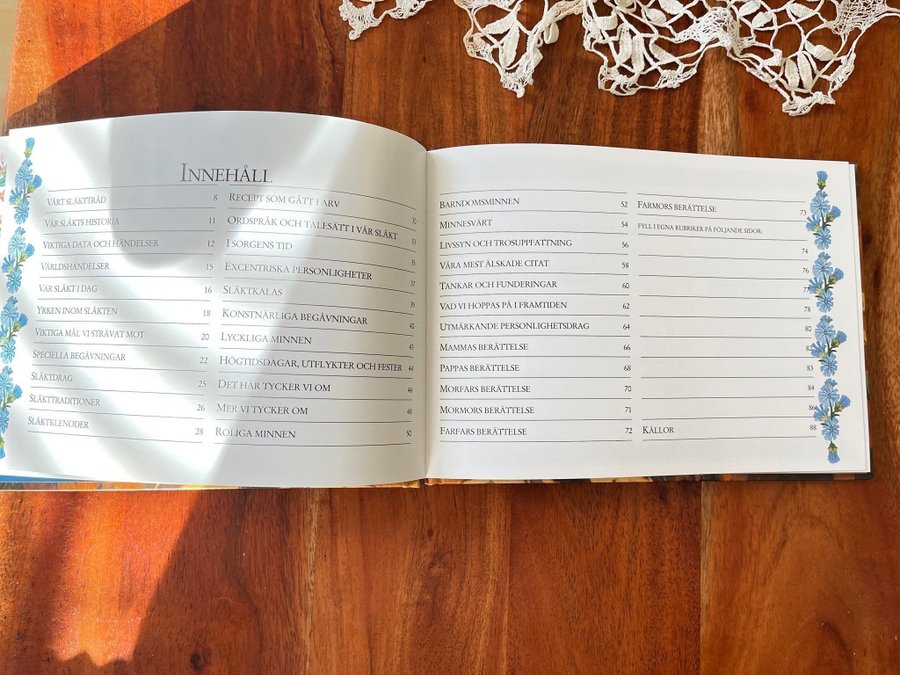 INNEHÅLL
VÅRT SLÄKTTRÄD 8
VÅR SLÄKTS HISTORIA 11
VIKTIGA DATA OCH HÄNDELSER 12
VÄRLDSHÄNDELSER 15
VÅR SLÄKT I DAG 16
YRKEN INOM SLÄKTEN 18
VIKTIGA MÅL VI STRÄVAT MOT 20
SPECIELLA BEGÅVNINGAR 22
SLÄKTDRAG 25
SLÄKTTRADITIONER 26
SLÄKTKLENODER 28
RECEPT SOM GÅTT I ARV 30
ORDSPRÅK OCH TALESÄTT I VÅR SLÄKT 33
I SORGENS TID 35
EXCENTRISKA PERSONLIGHETER 37
SLÄKTKALAS 39
KONSTNÄRLIGA BEGÅVNINGAR 40
LYCKLIGA MINNEN 43
HÖGTIDSDAGAR, UTFLYKTER OCH FESTER 44
DET HÄR TYCKER VI OM 46
MER VI TYCKER OM 48
ROLIGA MINNEN 50
BARNDOMSMINNEN 52
MINNESVÄRT 54
LIVSSYN OCH TROSUPPFATTNING 56
VÅRA MEST ÄLSKADE CITAT 58
TANKAR OCH FUNDERINGAR 60
VAD VI HOPPAS PÅ I FRAMTIDEN 62
UTMÄRKANDE PERSONLIGHETSDRAG 64
MAMMAS BERÄTTELSE 66
PAPPAS BERÄTTELSE 68
MORFARS BERÄTTELSE 70
MORMORS BERÄTTELSE 71
FARFARS BERÄTTELSE 72
FARMORS BERÄTTELSE 73
FYLL I EGNA RUBRIKER PÅ FÖLJANDE SIDOR:
74
76
77
78
80
82
83
84
86
KÄLLOR 88